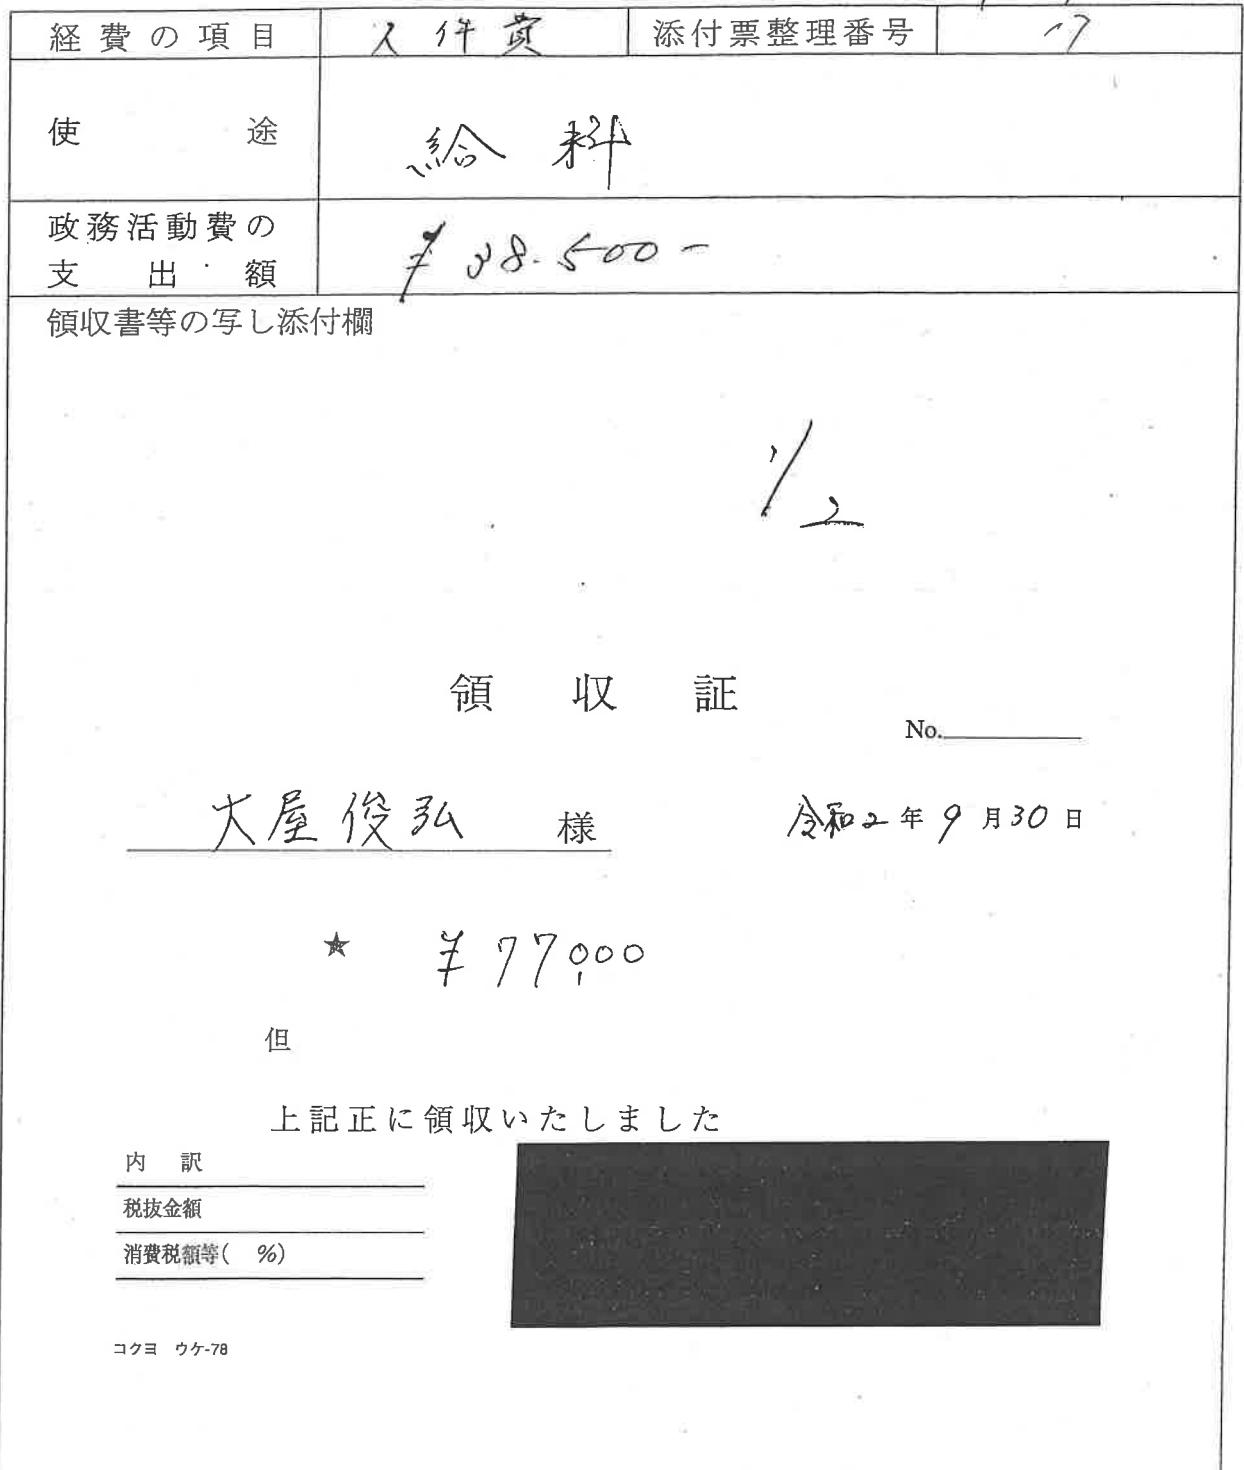 経費の項目 人件費 添付票整理番号 17
使途 給料
政務活動費の
支出額 ¥38.500-
領収書等の写し添付欄
1/2
領収証
No.
大屋俊弘 様 令和2年9月30日
★ ¥77,000
但
上記正に領収いたしました
内訳
税抜金額
消費税額等( %)
コクヨ ウケ-78